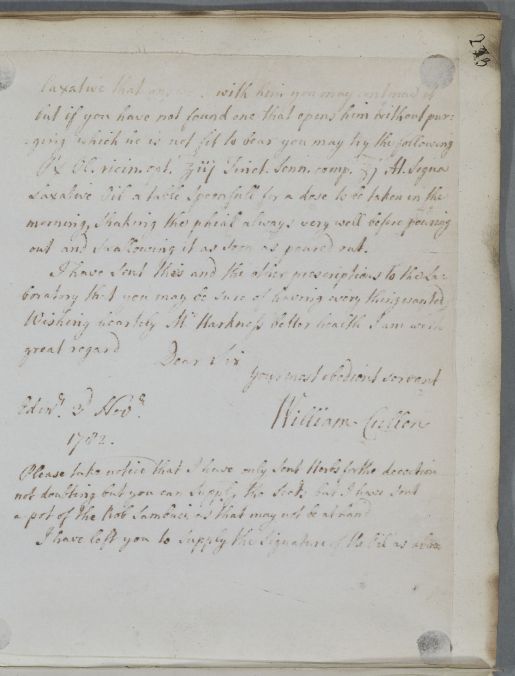 243
laxative that with him you may continue it
but if you have not found one that opens him without pur=
=ging which he is not fit to bear you may try the following
Rx Ol. ricin. opt. ℥iij Tinct. Senn. comp. ℥j M. Signa
Laxative Oil a table spoonfull for a dose to be taken in the
morning, shaking the phial always very well before pouring
out and swallowing it as soon as poured out.
I have sent this and the other prescriptions to the La=
boratory that you may be sure of having every thing wanted
Wishing heartily Mr Harkness better health I am with
great regard
Dear Sir
your most obedient servant
William Cullen
Edinr. 3d Novr.
1782.
Please take notice that I have only sent Herbs for the decoction
not doubting but you can supply the but I have sent
a pot of the Rob Sambuci as that may not be at hand
I have left you to supply the Signature of the Oil as above